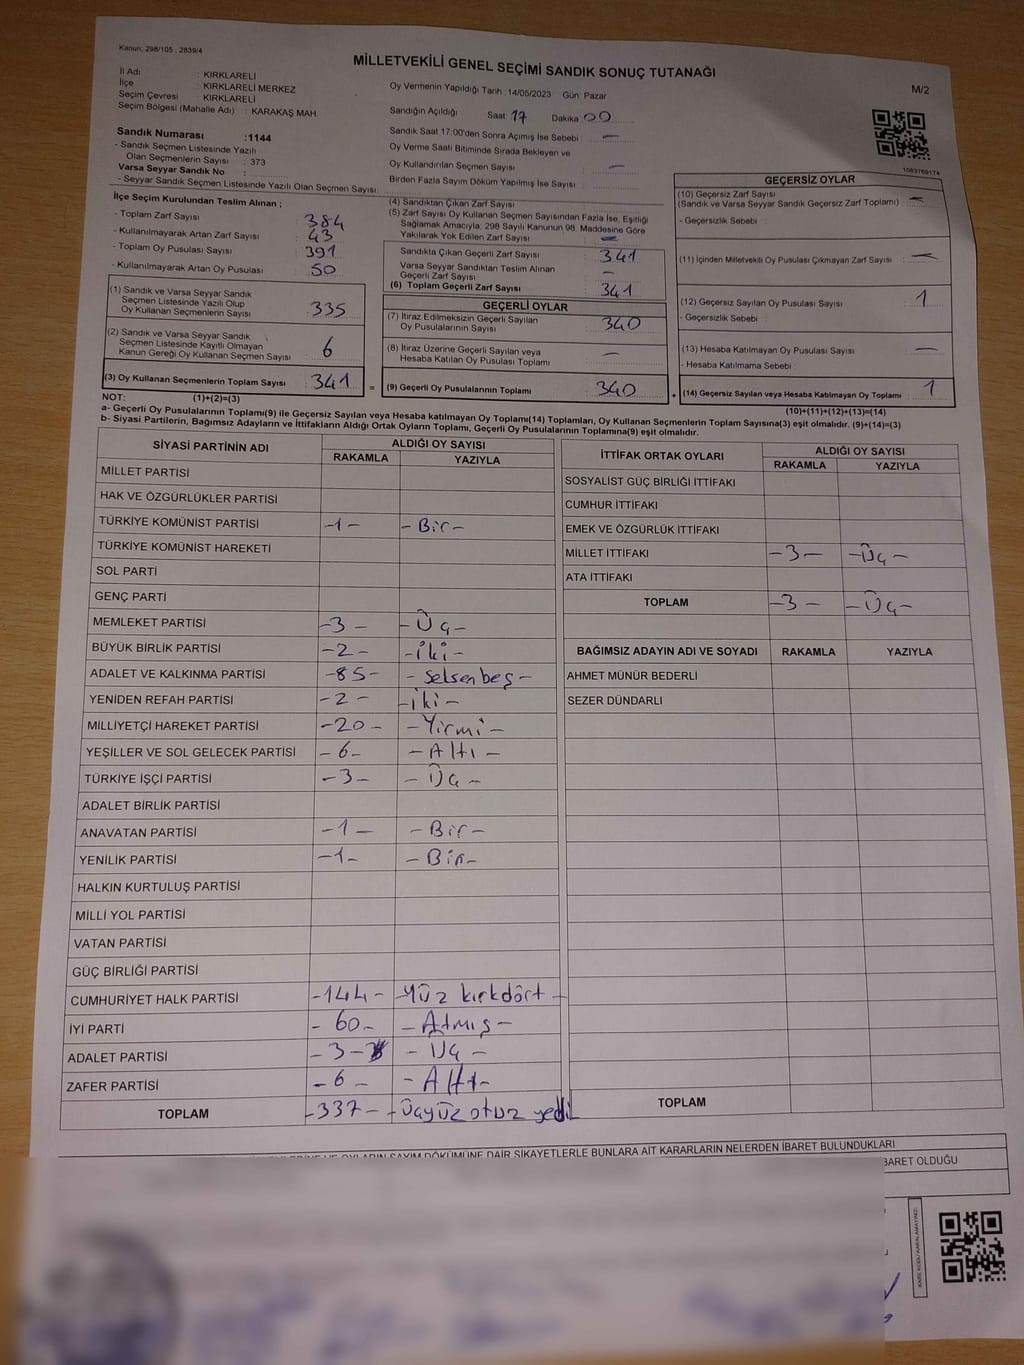 Kanun; 298/105 , 2839/4
MİLLETVEKİLİ GENEL SEÇİMİ SANDIK SONUÇ TUTANAĞI
M/2
İl Adı : KIRKLARELİ
İlçe : KIRKLARELİ MERKEZ
Seçim Çevresi : KIRKLARELİ
Seçim Bölgesi (Mahalle Adı) : KARAKAŞ MAH.
Sandık Numarası :1144
- Sandık Seçmen Listesinde Yazılı
Olan Seçmenlerin Sayısı : 373
Varsa Seyyar Sandık No :
- Seyyar Sandık Seçmen Listesinde Yazılı Olan Seçmen Sayısı:
Oy Vermenin Yapıldığı Tarih : 14/05/2023 Gün: Pazar
Sandığın Açıldığı Saat: 17 Dakika 00
Sandık Saat 17:00'den Sonra Açımış İse Sebebi : —
Oy Verme Saati Bitiminde Sırada Bekleyen ve
Oy Kullandırılan Seçmen Sayısı : —
Birden Fazla Sayım Döküm Yapılmış İse Sayısı :
1063769174
İlçe Seçim Kurulundan Teslim Alınan ;
- Toplam Zarf Sayısı : 384
- Kullanılmayarak Artan Zarf Sayısı : 43
- Toplam Oy Pusulası Sayısı : 391
- Kullanılmayarak Artan Oy Pusulası : 50
(1) Sandık ve Varsa Seyyar Sandık
Seçmen Listesinde Yazılı Olup
Oy Kullanan Seçmenlerin Sayısı : 335
(2) Sandık ve Varsa Seyyar Sandık
Seçmen Listesinde Kayıtlı Olmayan
Kanun Gereği Oy Kullanan Seçmen Sayısı : 6
(3) Oy Kullanan Seçmenlerin Toplam Sayısı : 341 =
(4) Sandıktan Çıkan Zarf Sayısı :
(5) Zarf Sayısı Oy Kullanan Seçmen Sayısından Fazla İse, Eşitliği
Sağlamak Amacıyla, 298 Sayılı Kanunun 98. Maddesine Göre
Yakılarak Yok Edilen Zarf Sayısı : —
Sandıkta Çıkan Geçerli Zarf Sayısı : 341
Varsa Seyyar Sandıktan Teslim Alınan
Geçerli Zarf Sayısı : —
(6) Toplam Geçerli Zarf Sayısı : 341
GEÇERLİ OYLAR
(7) İtiraz Edilmeksizin Geçerli Sayılan
Oy Pusulalarının Sayısı : 340
(8) İtiraz Üzerine Geçerli Sayılan veya
Hesaba Katılan Oy Pusulası Toplamı : —
(9) Geçerli Oy Pusulalarının Toplamı : 340 +
GEÇERSİZ OYLAR
(10) Geçersiz Zarf Sayısı
(Sandık ve Varsa Seyyar Sandık Geçersiz Zarf Toplamı) : —
- Geçersizlik Sebebi :
(11) İçinden Milletvekili Oy Pusulası Çıkmayan Zarf Sayısı : —
(12) Geçersiz Sayılan Oy Pusulası Sayısı : 1
- Geçersizlik Sebebi :
(13) Hesaba Katılmayan Oy Pusulası Sayısı : —
- Hesaba Katılmama Sebebi :
(14) Geçersiz Sayılan veya Hesaba Katılmayan Oy Toplamı : 1
NOT: (1)+(2)=(3)
(10)+(11)+(12)+(13)=(14)
a- Geçerli Oy Pusulalarının Toplamı(9) ile Geçersiz Sayılan veya Hesaba katılmayan Oy Toplamı(14) Toplamları, Oy Kullanan Seçmenlerin Toplam Sayısına(3) eşit olmalıdır. (9)+(14)=(3)
b- Siyasi Partilerin, Bağımsız Adayların ve İttifakların Aldığı Ortak Oyların Toplamı, Geçerli Oy Pusulalarının Toplamına(9) eşit olmalıdır.
SİYASİ PARTİNİN ADI ALDIĞI OY SAYISI
RAKAMLA YAZIYLA
MİLLET PARTİSİ
HAK VE ÖZGÜRLÜKLER PARTİSİ
TÜRKİYE KOMÜNİST PARTİSİ -1- -Bir-
TÜRKİYE KOMÜNİST HAREKETİ
SOL PARTİ
GENÇ PARTİ
MEMLEKET PARTİSİ -3- -Üç-
BÜYÜK BİRLİK PARTİSİ -2- -iki-
ADALET VE KALKINMA PARTİSİ -85- -Seksenbeş-
YENİDEN REFAH PARTİSİ -2- -iki-
MİLLİYETÇİ HAREKET PARTİSİ -20- -Yirmi-
YEŞİLLER VE SOL GELECEK PARTİSİ -6- -Altı-
TÜRKİYE İŞÇİ PARTİSİ -3- -Üç-
ADALET BİRLİK PARTİSİ
ANAVATAN PARTİSİ -1- -Bir-
YENİLİK PARTİSİ -1- -Bir-
HALKIN KURTULUŞ PARTİSİ
MİLLİ YOL PARTİSİ
VATAN PARTİSİ
GÜÇ BİRLİĞİ PARTİSİ
CUMHURİYET HALK PARTİSİ -144- -Yüz kırkdört-
İYİ PARTİ -60- -Atmış-
ADALET PARTİSİ -3- -Üç-
ZAFER PARTİSİ -6- -Altı-
TOPLAM -337- -Üçyüz otuz yedi
İTTİFAK ORTAK OYLARI ALDIĞI OY SAYISI
RAKAMLA YAZIYLA
SOSYALİST GÜÇ BİRLİĞİ İTTİFAKI
CUMHUR İTTİFAKI
EMEK VE ÖZGÜRLÜK İTTİFAKI
MİLLET İTTİFAKI -3- -Üç-
ATA İTTİFAKI
TOPLAM -3- -Üç-
BAĞIMSIZ ADAYIN ADI VE SOYADI RAKAMLA YAZIYLA
AHMET MÜNÜR BEDERLİ
SEZER DÜNDARLI
TOPLAM
OYLARIN SAYIM DÖKÜMÜNE DAİR ŞİKAYETLERLE BUNLARA AİT KARARLARIN NELERDEN İBARET BULUNDUKLARI
BARET OLDUĞU
KARE KODU KARALAMAYINIZ.